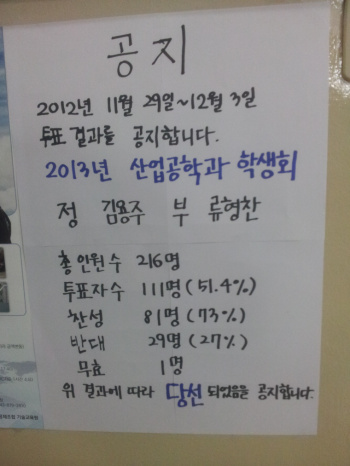 공지
2012년 11월 29일~12월 3일
투표 결과를 공지합니다.
2013년 산업공학과 학생회
정 김용주 부 류형찬
총인원수 216명
투표자수 111명(51.4%)
찬성 81명(73%)
반대 29명(27%)
무효 1명
위 결과에 따라 당선 되었음을 공지합니다.